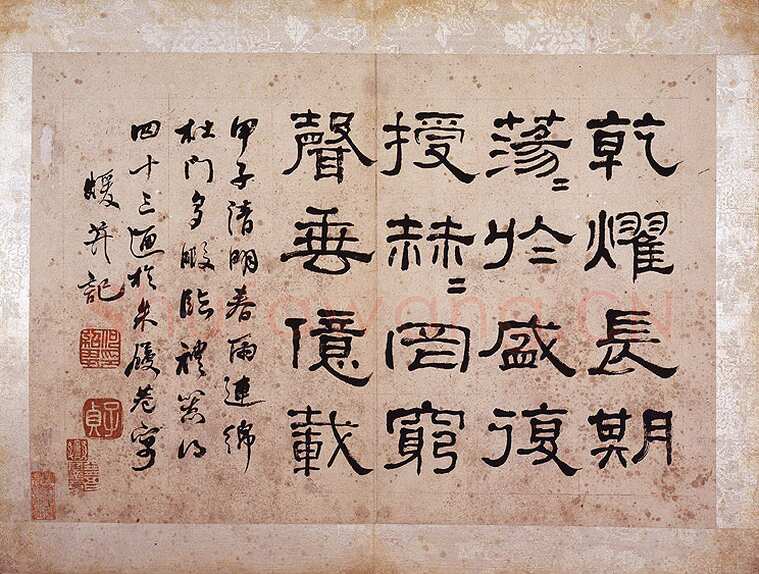 乾燿長期
蕩〻於盛復
授赫〻罔窮
聲垂億載
甲子清明春雨連綿
杜門多暇臨禮器得
四十三通於朱履巷寓
蝯并記
子貞